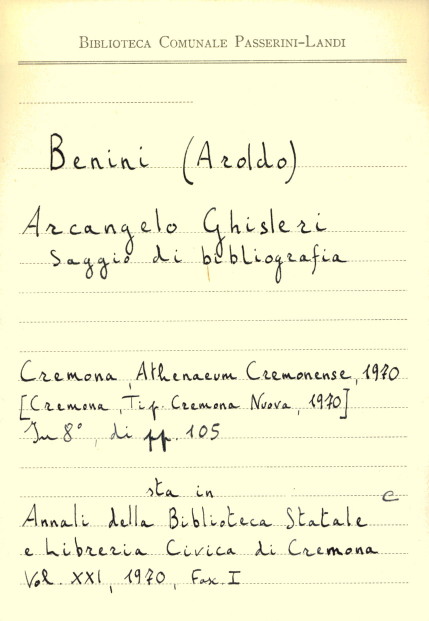 BIBLIOTECA COMUNALE PASSERINI-LANDI
Benini (Aroldo)
Arcangelo Ghisleri
Saggio di bibliografia
Cremona, Athenaeum Cremonense, 1970
[Cremona, Tip. Cremona Nuova, 1970]
In 8°, di pp. 105
sta in
e
Annali della Biblioteca Statale
e Libreria Civica di Cremona
Vol. XXI, 1970, Fax. I